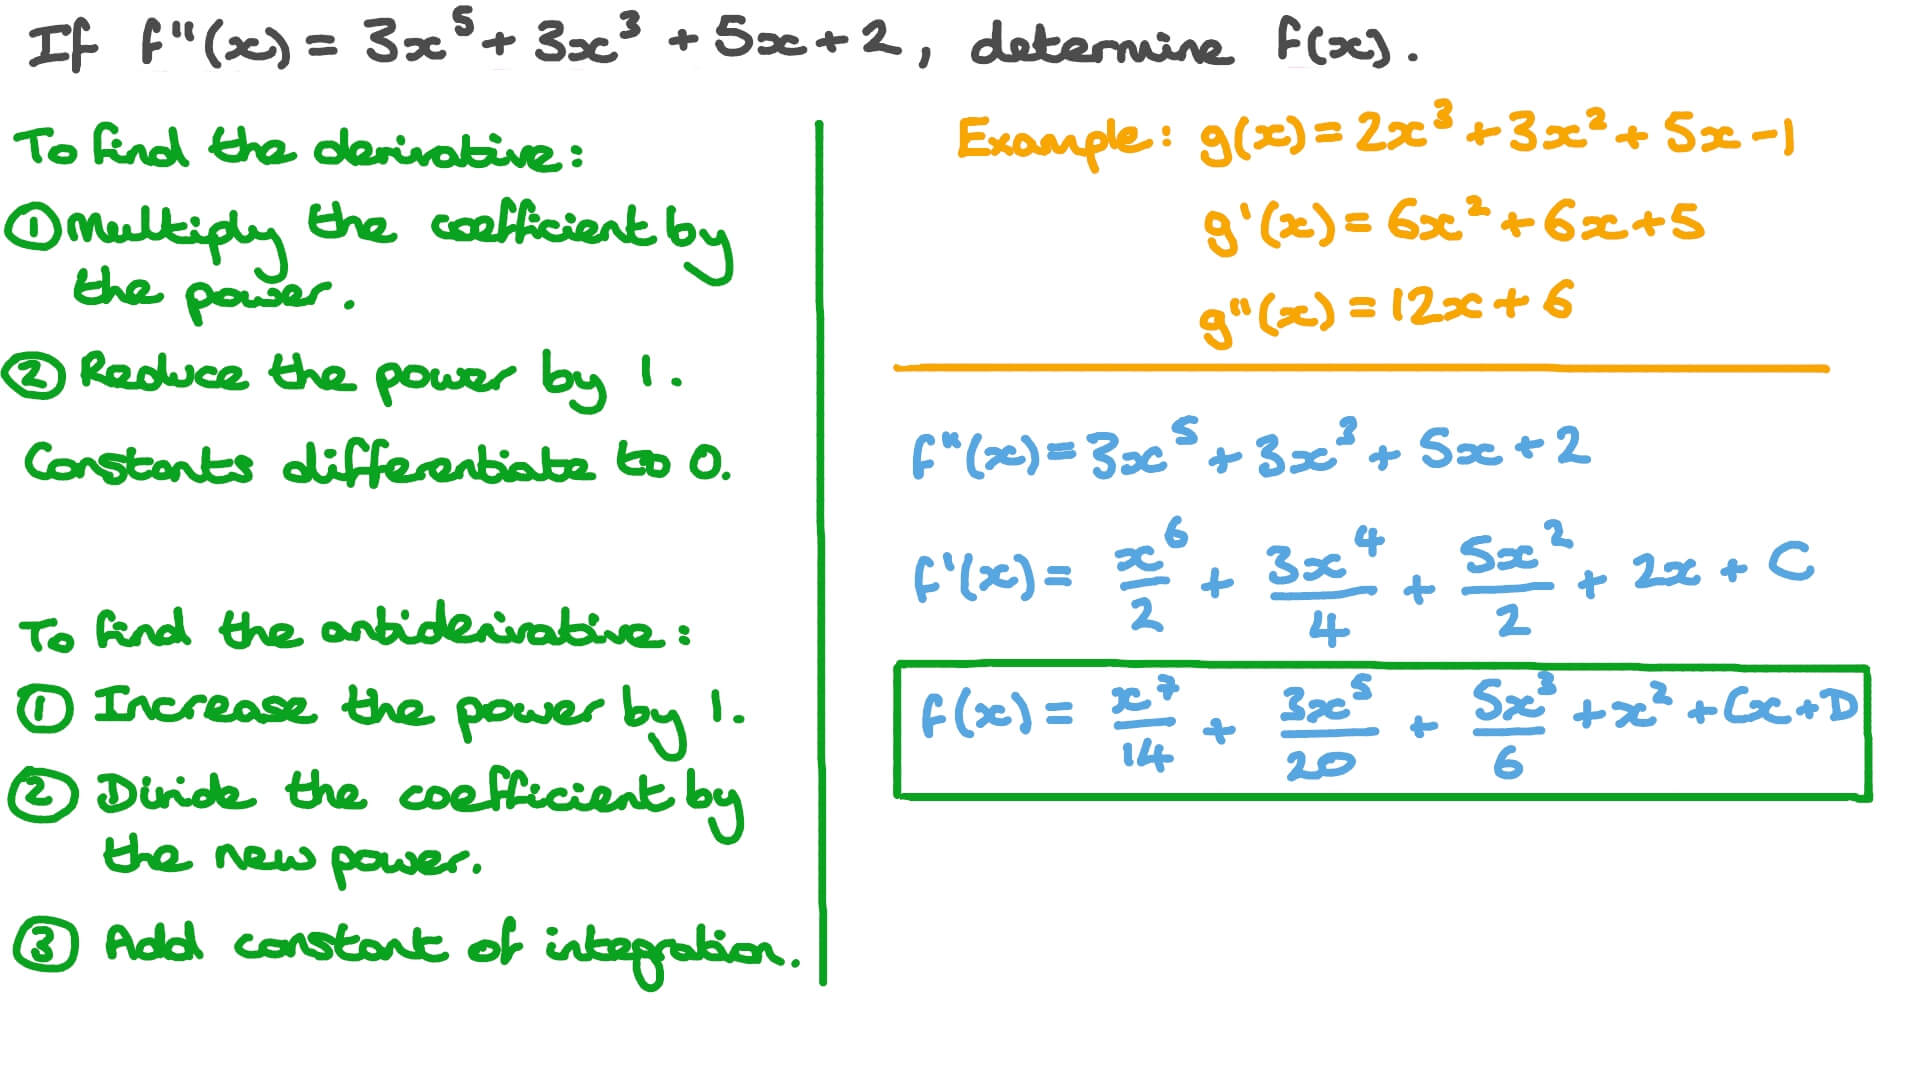 If f"(x) = 3x⁵ + 3x³ + 5x + 2, determine f(x).
To find the derivative:
① Multiply the coefficient by
the power.
② Reduce the power by 1.
Constants differentiate to 0.
To find the antiderivative:
① Increase the power by 1.
② Divide the coefficient by
the new power.
③ Add constant of integration.
Example: g(x) = 2x³ + 3x² + 5x - 1
g'(x) = 6x² + 6x + 5
g"(x) = 12x + 6
f"(x) = 3x⁵ + 3x³ + 5x + 2
f'(x) = x⁶/2 + 3x⁴/4 + 5x²/2 + 2x + C
f(x) = x⁷/14 + 3x⁵/20 + 5x³/6 + x² + Cx + D